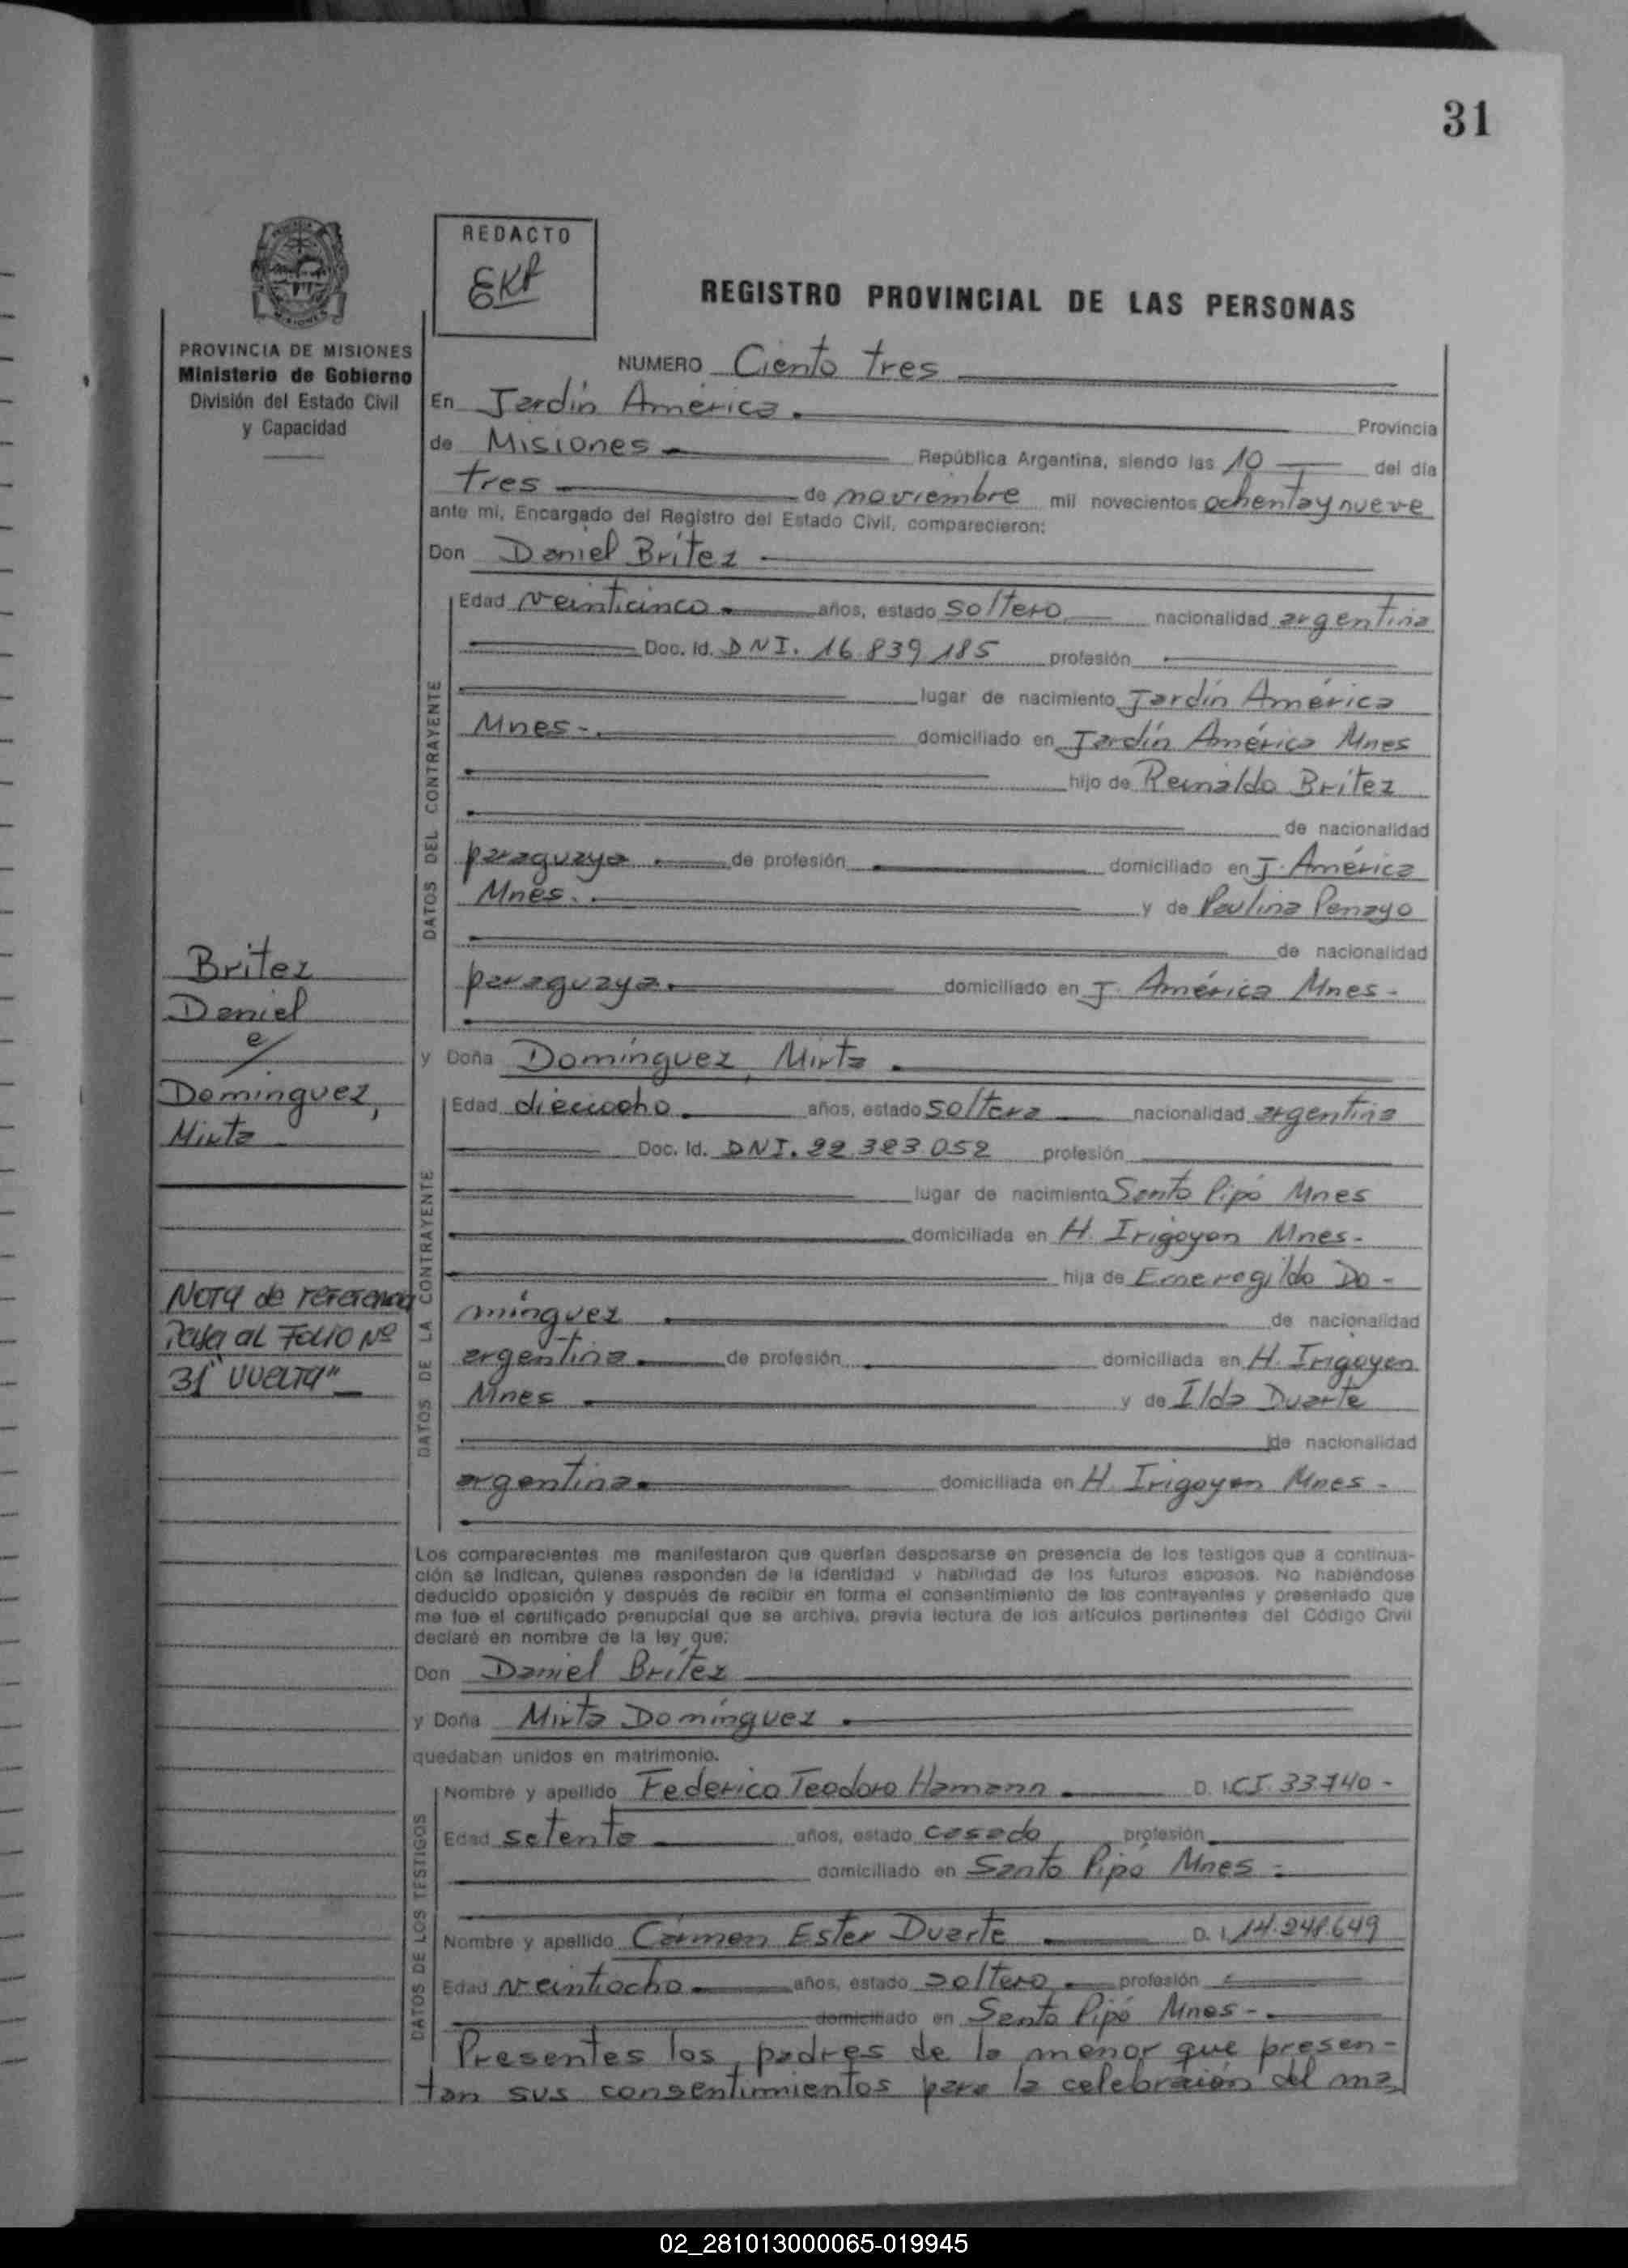 31
REDACTO
EKA
REGISTRO PROVINCIAL DE LAS PERSONAS
PROVINCIA DE MISIONES
Ministerio de Gobierno
División del Estado Civil
y Capacidad
NUMERO Ciento tres
En Jardín América. Provincia
de Misiones República Argentina, siendo las 10 del día
tres de noviembre mil novecientos ochenta y nueve
ante mí, Encargado del Registro del Estado Civil, comparecieron:
Don Daniel Britez
DATOS DEL CONTRAYENTE
Edad veinticinco años, estado soltero nacionalidad argentina
Doc. Id. DNI. 16.839.185 profesión
lugar de nacimiento Jardín América
Mnes-. domiciliado en Jardín América Mnes
hijo de Reinaldo Britez
de nacionalidad
paraguaya de profesión domiciliado en J. América
Mnes. y de Paulina Penayo
de nacionalidad
paraguaya. domiciliado en J. América Mnes-
Britez
Daniel
c/
Dominguez,
Mirta
y Doña Domínguez, Mirta
DATOS DE LA CONTRAYENTE
Edad dieciocho años, estado soltera nacionalidad argentina
Doc. Id. DNI. 22.383.052 profesión
lugar de nacimiento Santo Pipó Mnes
domiciliada en H. Irigoyen Mnes-
hija de Emeregildo Do-
mínguez de nacionalidad
argentina de profesión domiciliada en H. Irigoyen
Mnes y de Ilda Duarte
de nacionalidad
argentina. domiciliada en H. Irigoyen Mnes-
Nota de referencia
Pasa al Folio Nº
31 "Vuelta"
Los comparecientes me manifestaron que querían desposarse en presencia de los testigos que a continua-
ción se indican, quienes responden de la identidad y habilidad de los futuros esposos. No habiéndose
deducido oposición y después de recibir en forma el consentimiento de los contrayentes y presentado que
me fue el certificado prenupcial que se archiva, previa lectura de los artículos pertinentes del Código Civil
declaré en nombre de la ley que:
Don Daniel Britez
y Doña Mirta Domínguez
quedaban unidos en matrimonio.
DATOS DE LOS TESTIGOS
Nombre y apellido Federico Teodoro Hamann D. I. CI. 33.740-
Edad setenta años, estado casado profesión
domiciliado en Santo Pipó Mnes-
Nombre y apellido Carmen Ester Duarte D. I. 14.248.649
Edad veintiocho años, estado soltero profesión
domiciliado en Santo Pipó Mnes-
Presentes los padres de la menor que presen-
tan sus consentimientos para la celebración del ma
02_281013000065-019945